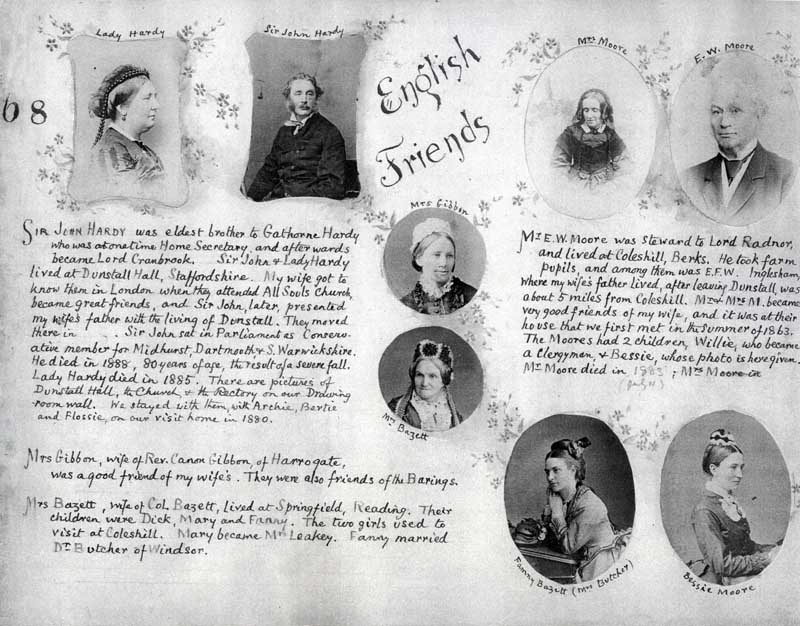 68
Lady Hardy
Sir John Hardy
English
Friends
Mrs Moore
E. W. Moore
SIR JOHN HARDY was eldest brother to Gathorne Hardy
who was at one time Home Secretary, and afterwards
became Lord Cranbrook. Sir John & Lady Hardy
lived at Dunstall Hall, Staffordshire. My wife got to
know them in London when they attended All Souls Church,
became great friends, and Sir John, later, presented
my wife's father with the living of Dunstall. They moved
there in . . . . Sir John sat in Parliament as Conserv-
ative member for Midhurst, Dartmouth & S. Warwickshire.
He died in 1888, 80 years of age, the result of a severe fall.
Lady Hardy died in 1885. There are pictures of
Dunstall Hall, the Church, & the Rectory on our Drawing
room wall. We stayed with them, with Archie, Bertie
and Flossie, on our visit home in 1880.
Mrs Gibbon, wife of Rev. Canon Gibbon, of Harrogate,
was a good friend of my wife's. They were also friends of the Barings.
Mrs Bazett, wife of Col. Bazett, lived at Springfield, Reading. Their
children were Dick, Mary and Fanny. The two girls used to
visit at Coleshill. Mary became Mrs Leakey. Fanny married
Dr Butcher of Windsor.
Mrs Gibbon
Mrs Bazett
Mr E.W. Moore was steward to Lord Radnor,
and lived at Coleshill, Berks. He took farm
pupils, and among them was E.F.W. Inglesham,
where my wife's father lived, after leaving Dunstall, was
about 5 miles from Coleshill. Mr & Mrs M. became
very good friends of my wife, and it was at their
house that we first met in the summer of 1863.
The Moores had 2 children, Willie, who became
a Clergyman, & Bessie, whose photo is here given.
Mr Moore died in 1883; Mrs Moore in
Fanny Bazett (Mrs Butcher)
Bessie Moore